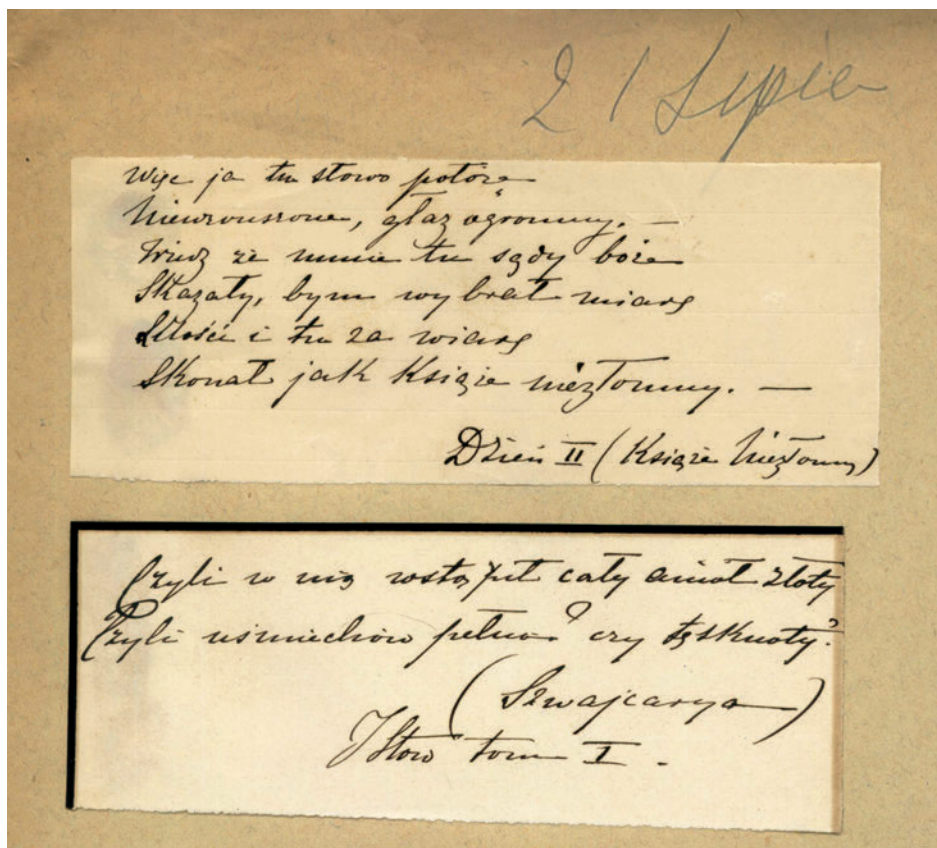 21 Lipie
Więc ja tu słowo położe
Niewzruszone, głaz ogromny. —
Widz że mnie tu sądy boże
Skazały, bym wybrał miarę
Złości i tu za wiarę
Skonał jak Książe niezłomny. —
Dzień II (Książe Niezłomny)
Czyli w nią wstąpił cały anioł złoty
Czyli uśmiechów pełna? czy tęsknoty?
(Szwajcarya)
J Słow tom I.